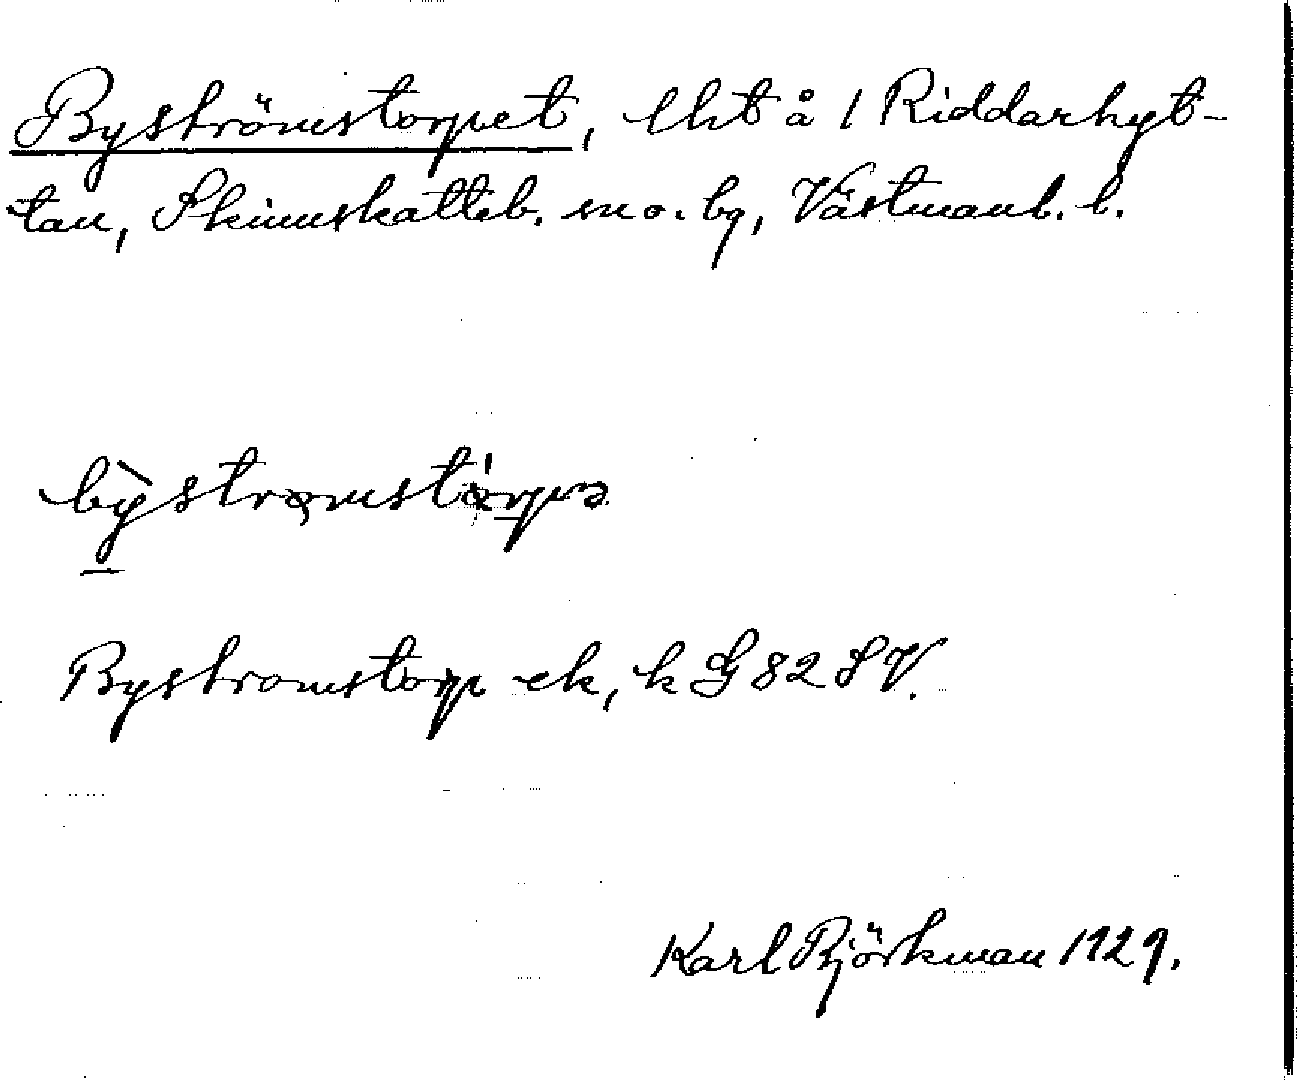 Byströmstorpet, lht å 1 Riddarhyt-
tan, Skinnskatteb. sn o. bg, Västmanl. l.
Byströmstorp ek, k G 82 SV.
Karl Björkman 1929.